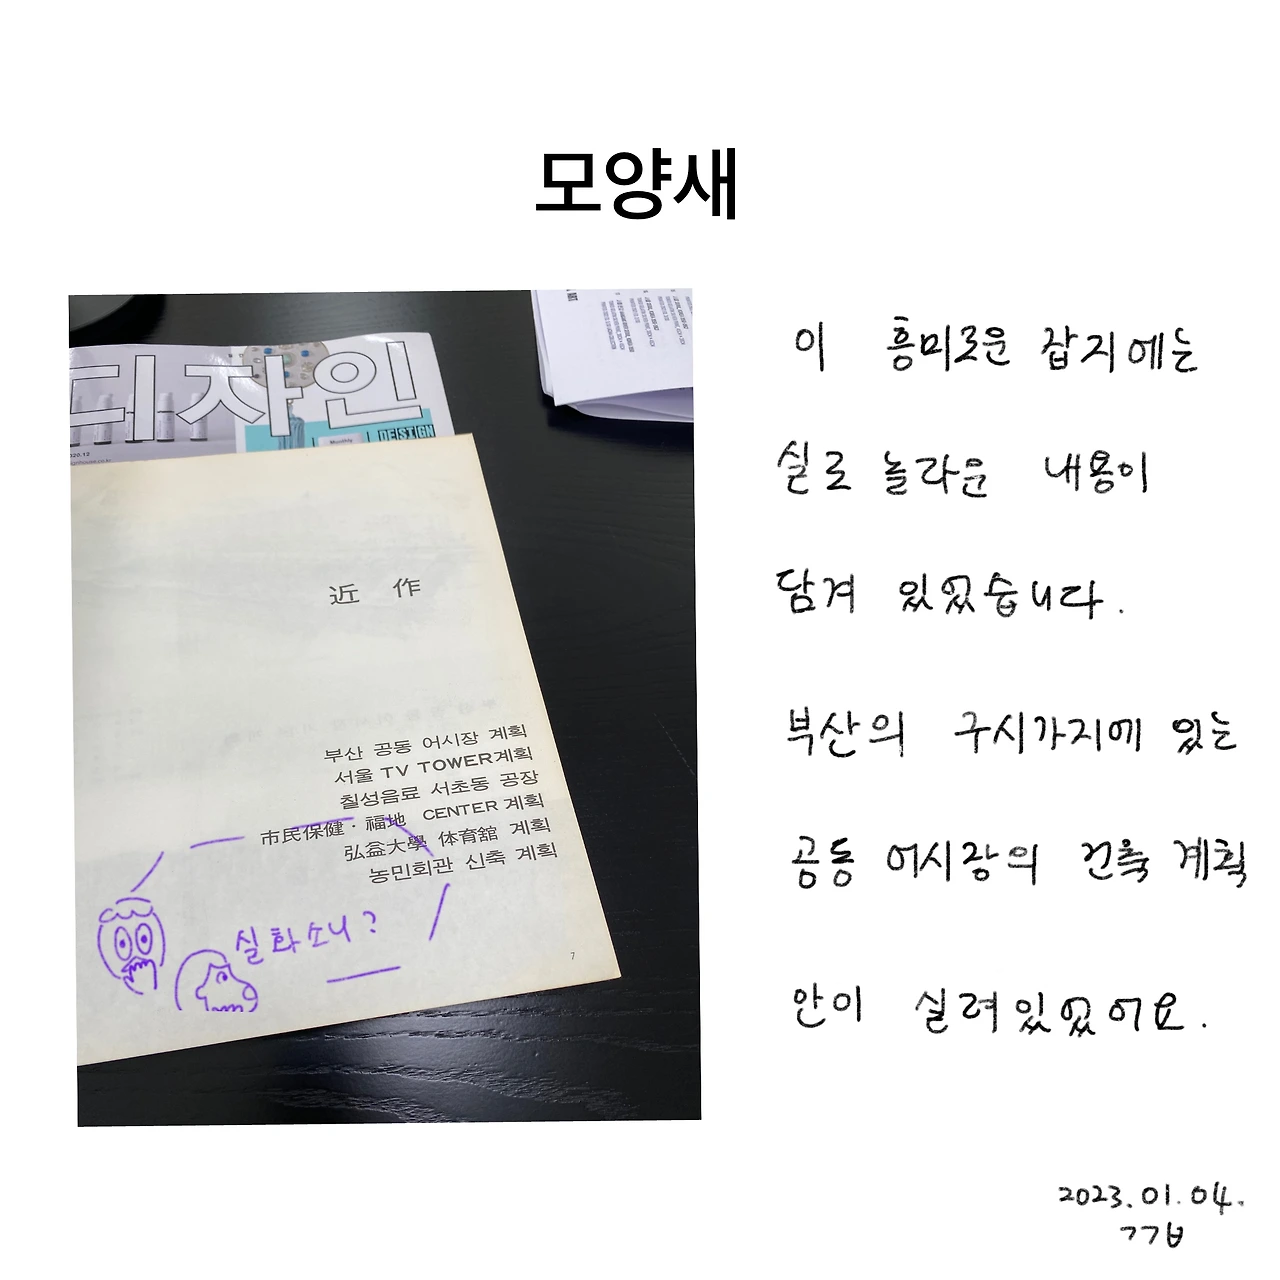 모양새
디자인
Monthly
DE(SIGN
近 作
부산 공동 어시장 계획
서울 TV TOWER계획
칠성음료 서초동 공장
市民保健·福地 CENTER 계획
弘益大學 体育舘 계획
농민회관 신축 계획
7
실화소니?
이 흥미로운 잡지에는
실로 놀라운 내용이
담겨 있었습니다.
부산의 구시가지에 있는
공동 어시장의 건축 계획
안이 실려있었어요.
2023.01.04.
ㄱㄱㅂ